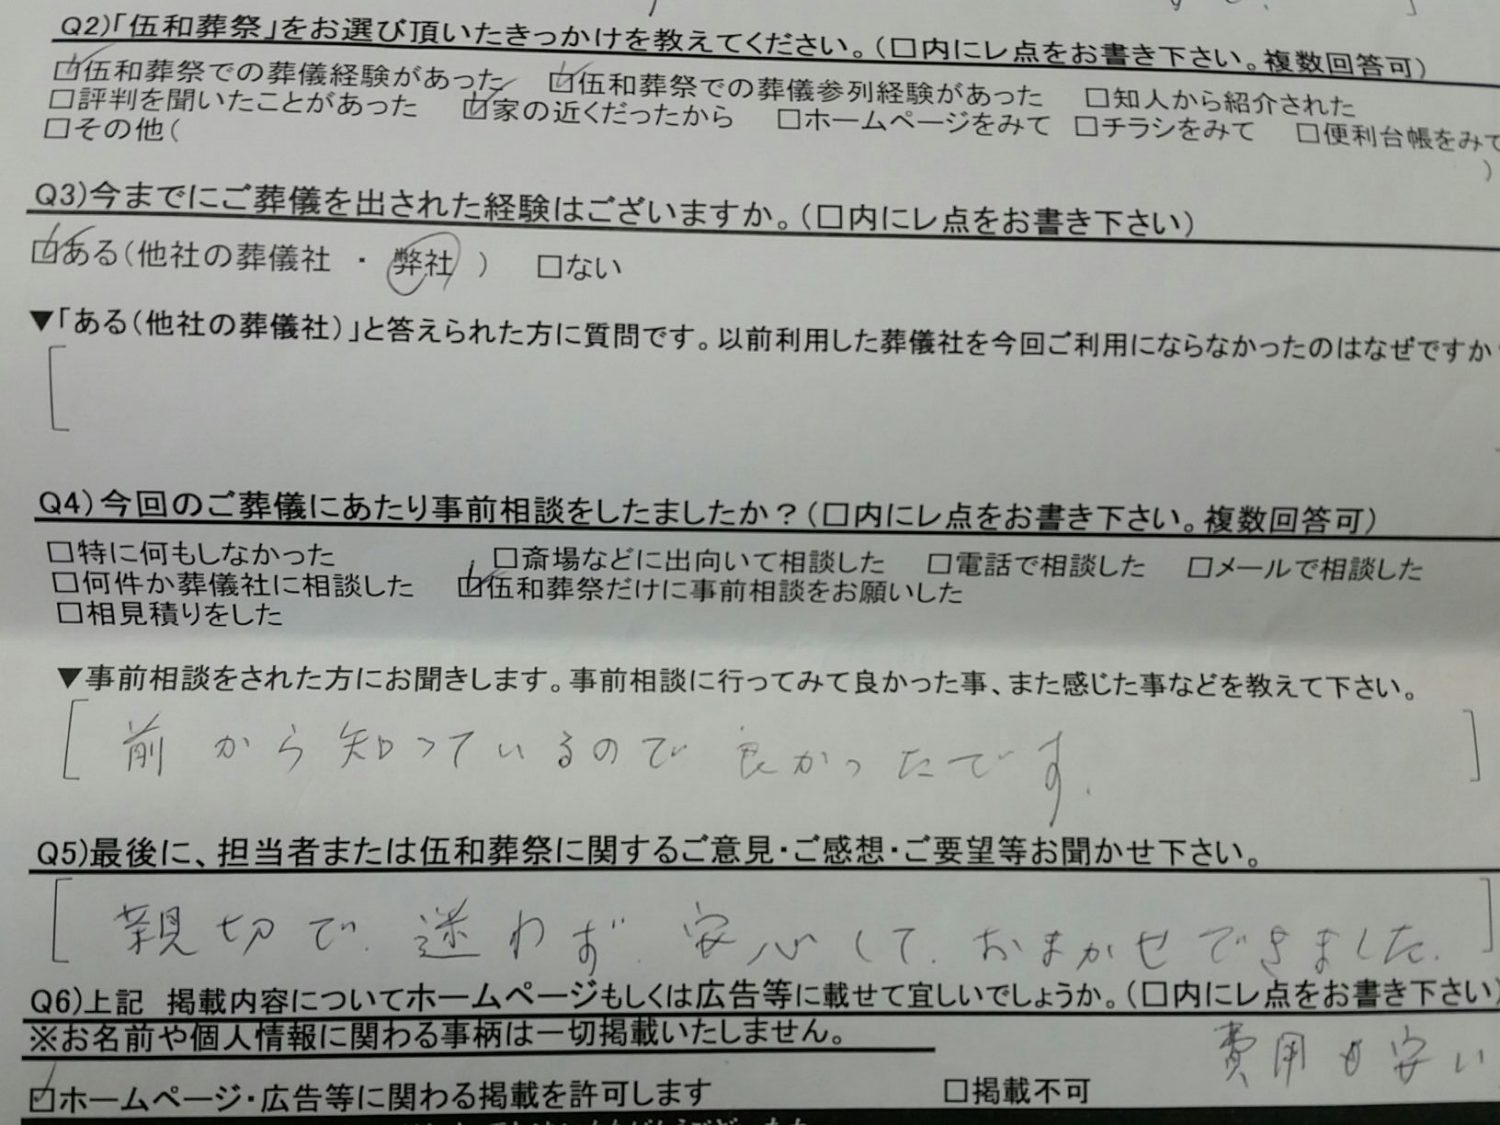 Q2)「伍和葬祭」をお選び頂いたきっかけを教えてください。(□内にレ点をお書き下さい。複数回答可)
☑伍和葬祭での葬儀経験があった ☑伍和葬祭での葬儀参列経験があった □知人から紹介された
□評判を聞いたことがあった ☑家の近くだったから □ホームページをみて □チラシをみて □便利台帳をみて
□その他( )
Q3)今までにご葬儀を出された経験はございますか。(□内にレ点をお書き下さい)
☑ある(他社の葬儀社 ・ 弊社 ) □ない
▼「ある(他社の葬儀社)」と答えられた方に質問です。以前利用した葬儀社を今回ご利用にならなかったのはなぜですか
Q4)今回のご葬儀にあたり事前相談をしたましたか?(□内にレ点をお書き下さい。複数回答可)
□特に何もしなかった □斎場などに出向いて相談した □電話で相談した □メールで相談した
□何件か葬儀社に相談した ☑伍和葬祭だけに事前相談をお願いした
□相見積りをした
▼事前相談をされた方にお聞きします。事前相談に行ってみて良かった事、また感じた事などを教えて下さい。
[前から知っているので良かったです.]
Q5)最後に、担当者または伍和葬祭に関するご意見・ご感想・ご要望等お聞かせ下さい。
[親切で.迷わず.安心して.おまかせできました.]
Q6)上記 掲載内容についてホームページもしくは広告等に載せて宜しいでしょうか。(□内にレ点をお書き下さい)
※お名前や個人情報に関わる事柄は一切掲載いたしません。
費用も安い
☑ホームページ・広告等に関わる掲載を許可します □掲載不可